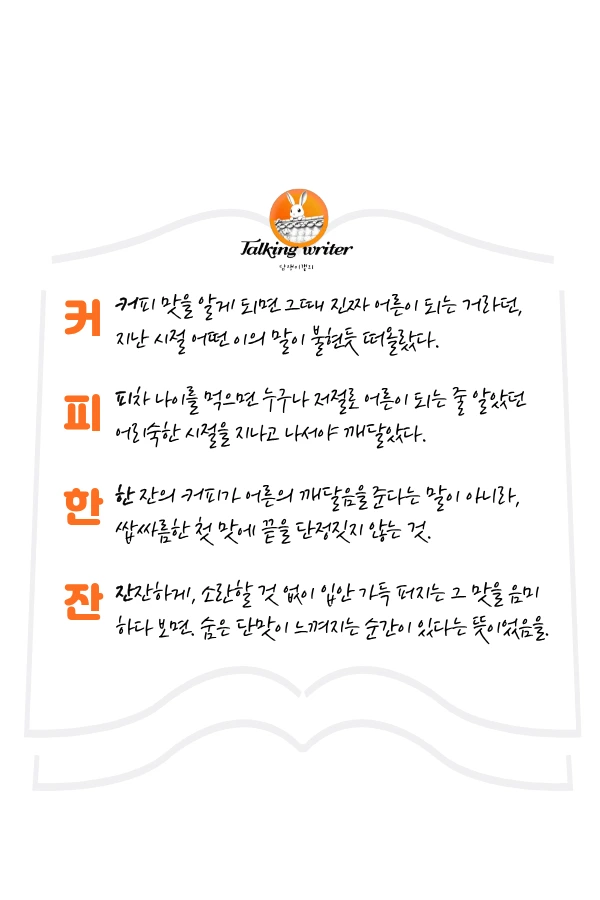 Talking writer
담쟁이캘리
커
커피 맛을 알게 되면 그때 진짜 어른이 되는 거라던,
지난 시절 어떤 이의 말이 불현듯 떠올랐다.
피
피차 나이를 먹으면 누구나 저절로 어른이 되는 줄 알았던
어리숙한 시절을 지나고 나서야 깨달았다.
한
한 잔의 커피가 어른의 깨달음을 준다는 말이 아니라,
쌉싸름한 첫 맛에 끝을 단정짓지 않는 것.
잔
잔잔하게, 소란할 것 없이 입안 가득 퍼지는 그 맛을 음미
하다 보면. 숨은 단맛이 느껴지는 순간이 있다는 뜻이었음을.